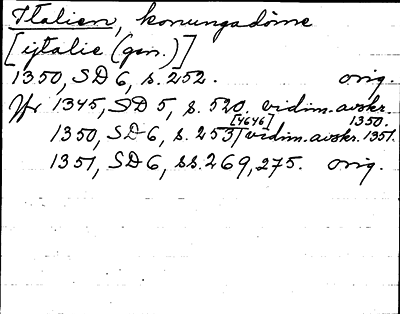 Italien, konungadöme
[ijtalie (gen.)]
1350, SD 6, s. 252. orig.
Jfr 1345, SD 5, s. 520, vidim. avskr. 1350.
1350, SD 6, s. 253 [4646] vidim. avskr. 1351.
1351, SD 6, ss. 269, 275. orig.